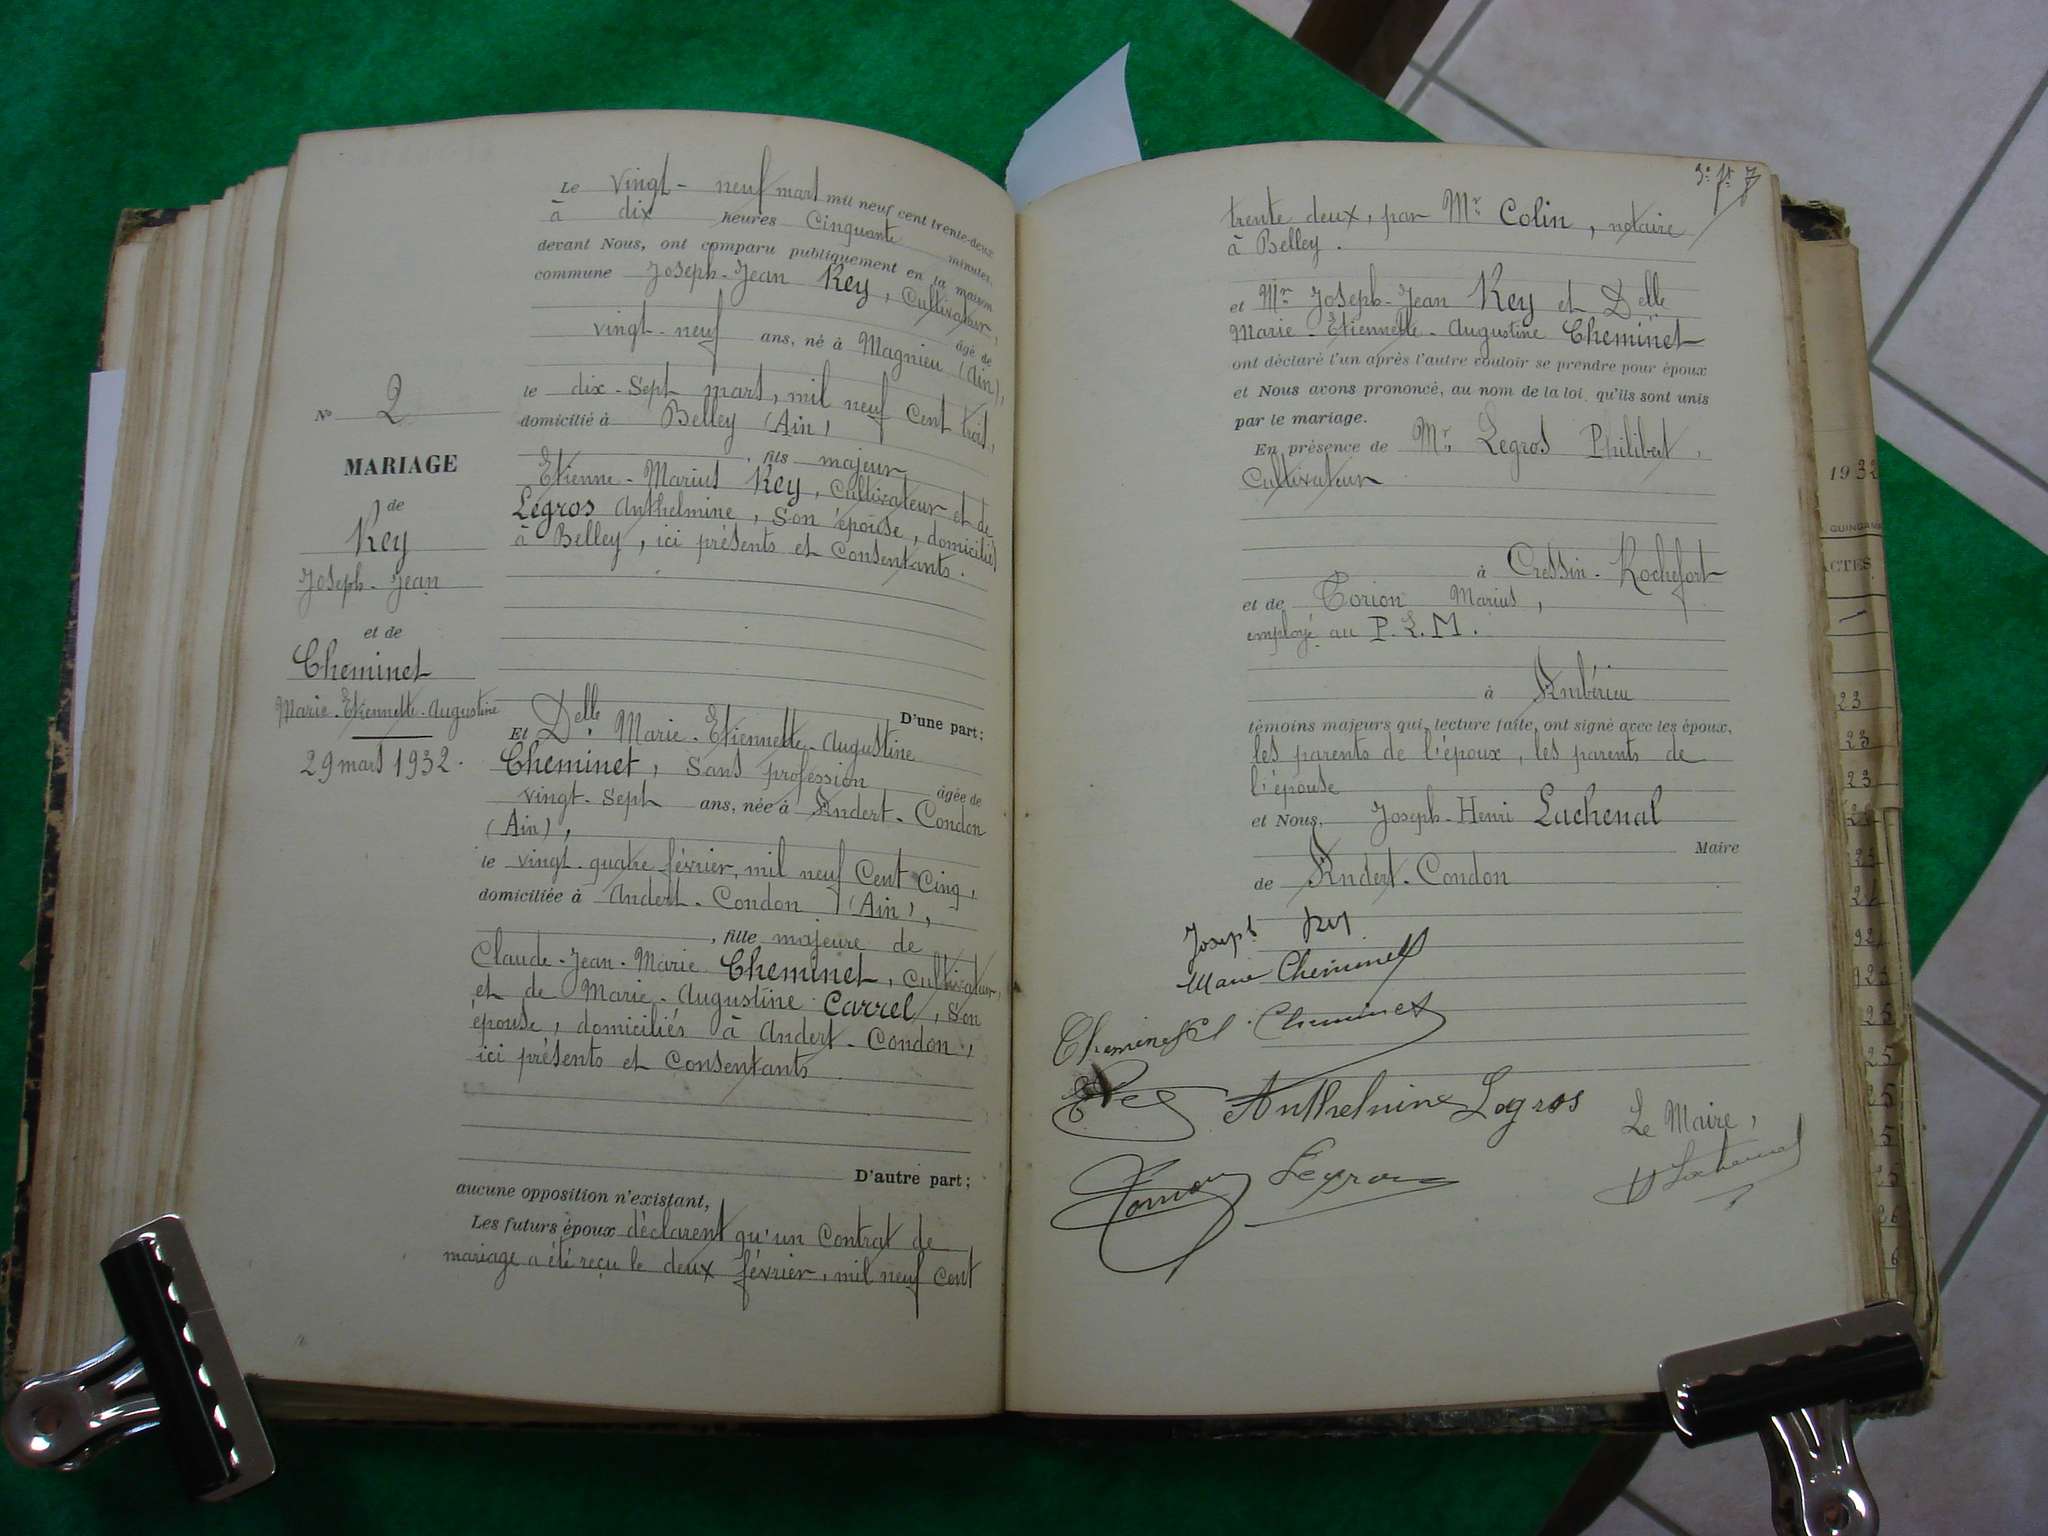 Le vingt-neuf mars mil neuf cent trente-deux
à dix heures Cinquante minutes
devant Nous, ont comparu publiquement en la maison
commune Joseph-Jean Rey, Cultivateur,
âgé de
vingt-neuf ans, né à Magnieu (Ain),
le dix-sept mars, mil neuf Cent trois,
domicilié à Belley (Ain)
, fils majeur
Etienne-Marius Rey, Cultivateur et de
Legros Anthelmine, Son épouse, domiciliés
à Belley, ici présents et Consentants.
D'une part;
Et Delle Marie-Etiennette-Augustine
Cheminet, Sans profession âgée de
vingt-Sept ans, née à Andert-Condon
(Ain),
le vingt-quatre février, mil neuf Cent Cinq,
domiciliée à Andert-Condon (Ain),
, fille majeure de
Claude-Jean-Marie Cheminet, Cultivateur,
et de Marie-Augustine Carrel, Son
épouse, domiciliés à Andert-Condon,
ici présents et Consentants
D'autre part;
aucune opposition n'existant,
Les futurs époux déclarent qu'un Contrat de
mariage a été reçu le deux février, mil neuf Cent
No 2
MARIAGE
de
Rey
Joseph-Jean
et de
Cheminet
Marie-Etiennette-Augustine
29 mars 1932.
trente deux, par Mr Colin, notaire
à Belley.
et Mr Joseph-Jean Rey et Delle
Marie-Etiennette-Augustine Cheminet
ont déclaré l'un après l'autre vouloir se prendre pour époux
et Nous avons prononcé, au nom de la loi, qu'ils sont unis
par le mariage.
En présence de Mr Legros Philibert,
Cultivateur
à Cressin-Rochefort
et de Torion Marius,
employé au P.L.M.
à Ambérieu
témoins majeurs qui, lecture faite, ont signé avec les époux,
les parents de l'époux, les parents de
l'épouse
et Nous, Joseph-Henri Lachenal
Maire
de Andert-Condon
Joseph Rey
Marie Cheminet
Cheminet Cl. Cheminet
Anthelmine Legros
Legros
Le Maire,
Lachenal
1932
GUINGAMP
ACTES
23
23
23